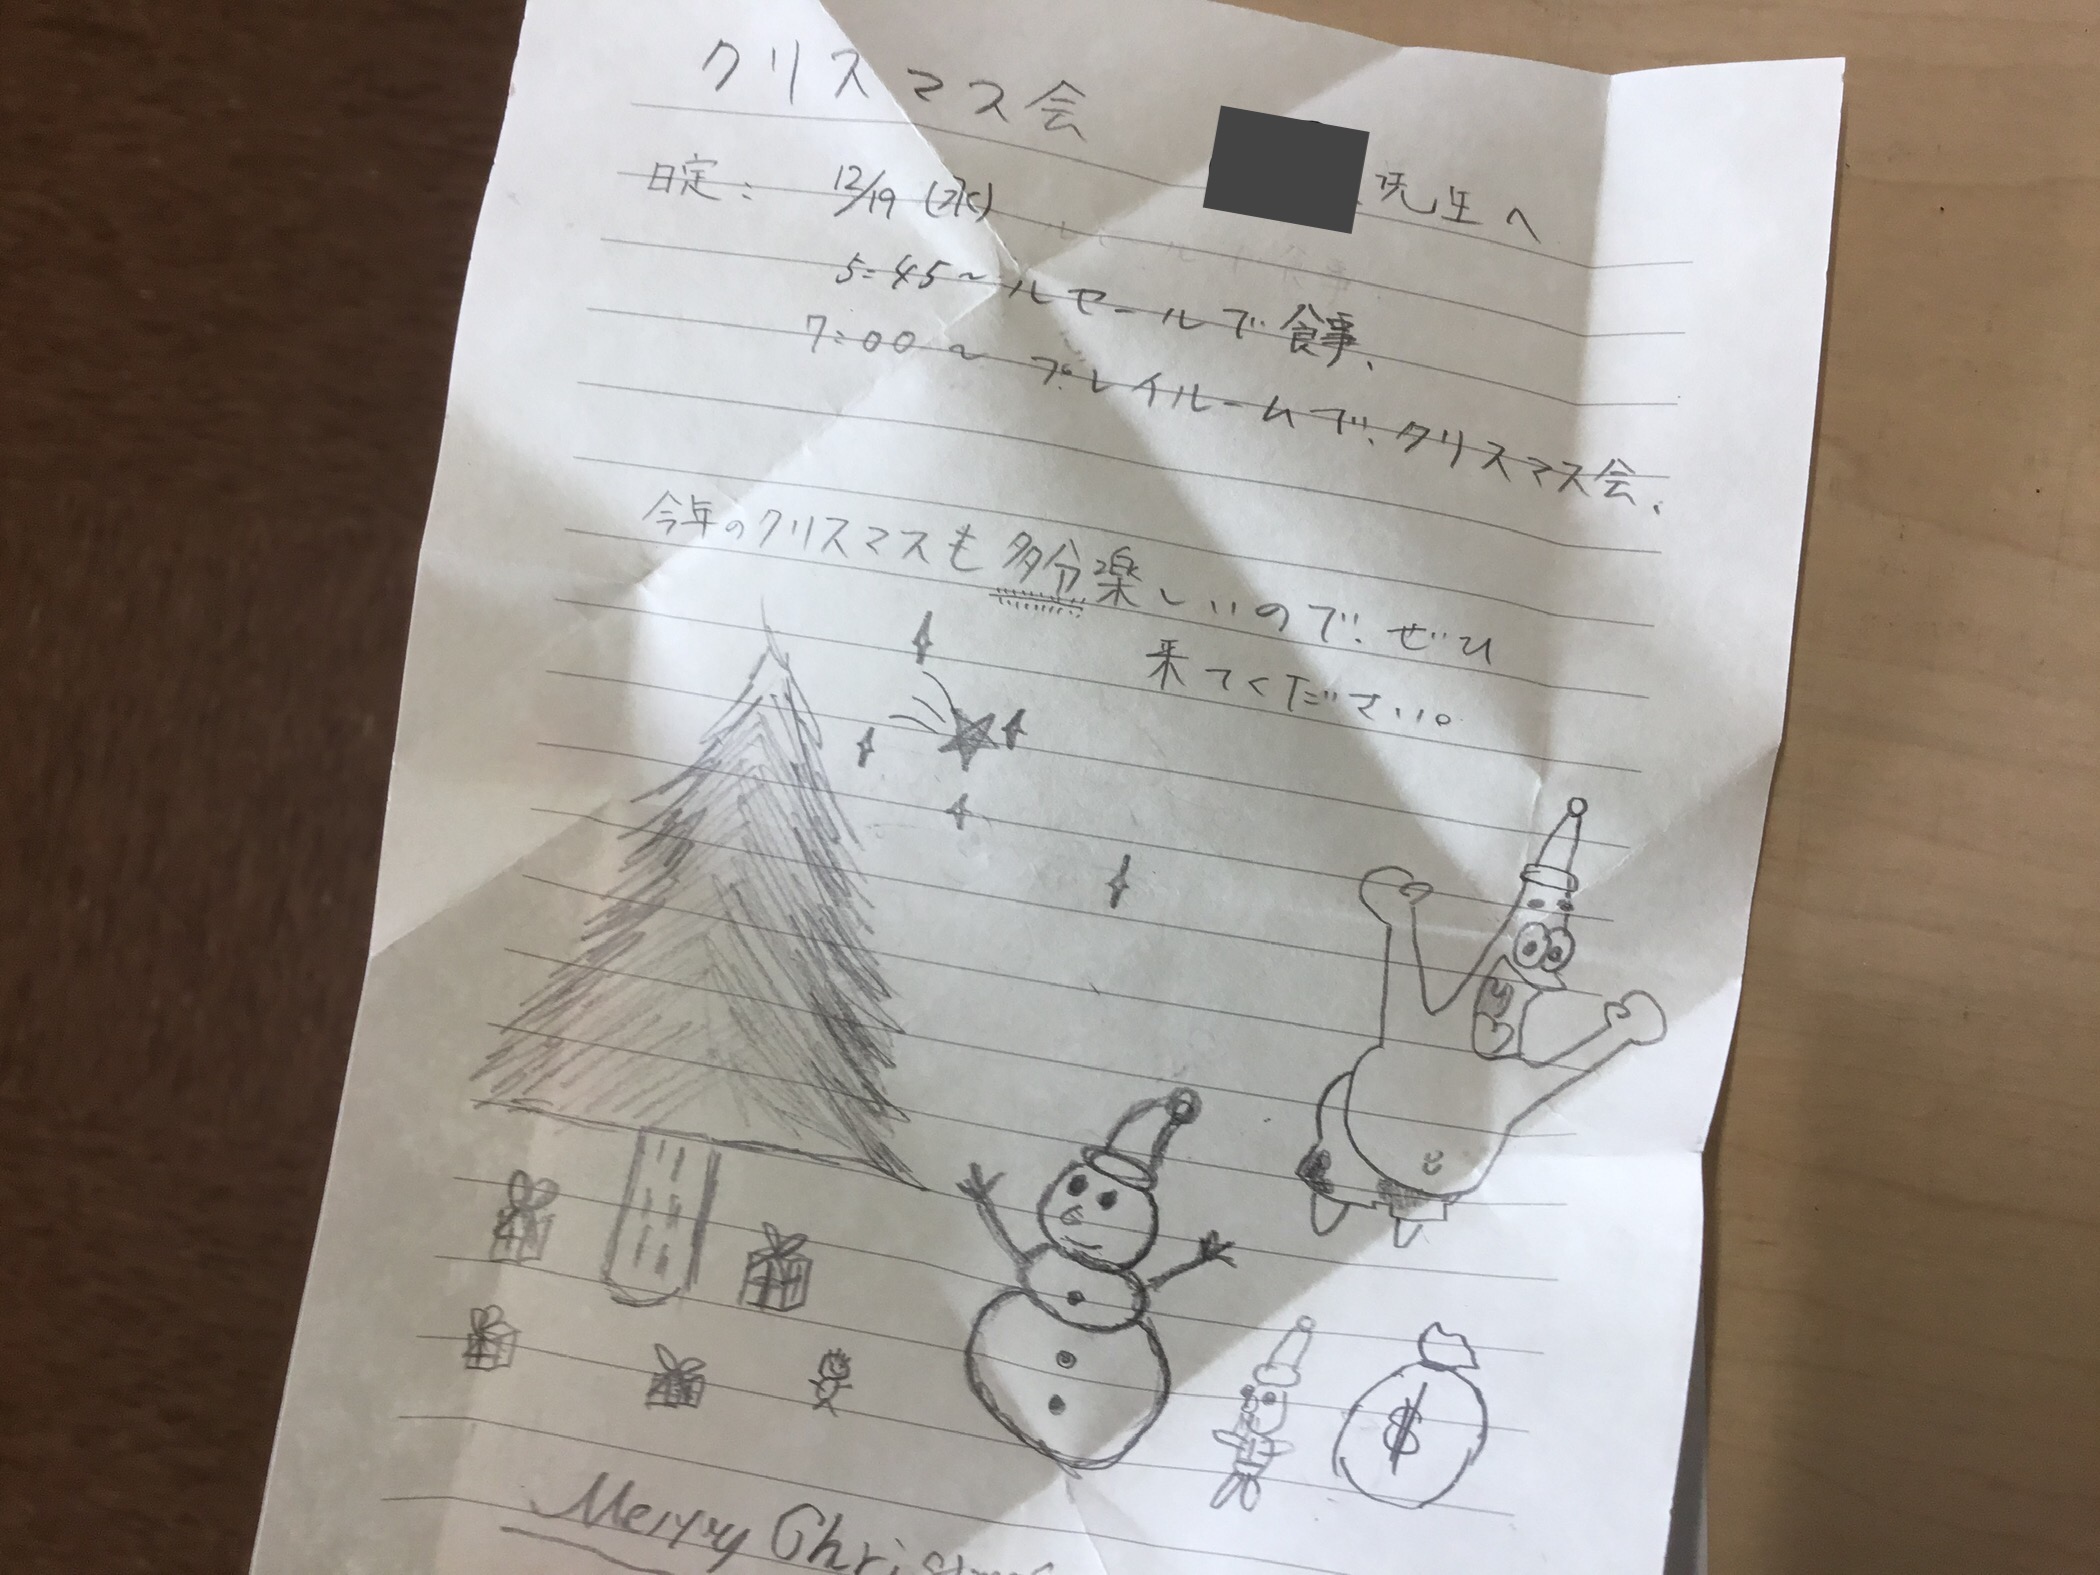 クリスマス会
先生へ
日定: 12/19 (水)
5:45〜ルセールで食事、
7:00〜プレイルームで、クリスマス会、
今年のクリスマスも多分楽しいので、ぜひ
来てください。
$
Merry Christmas